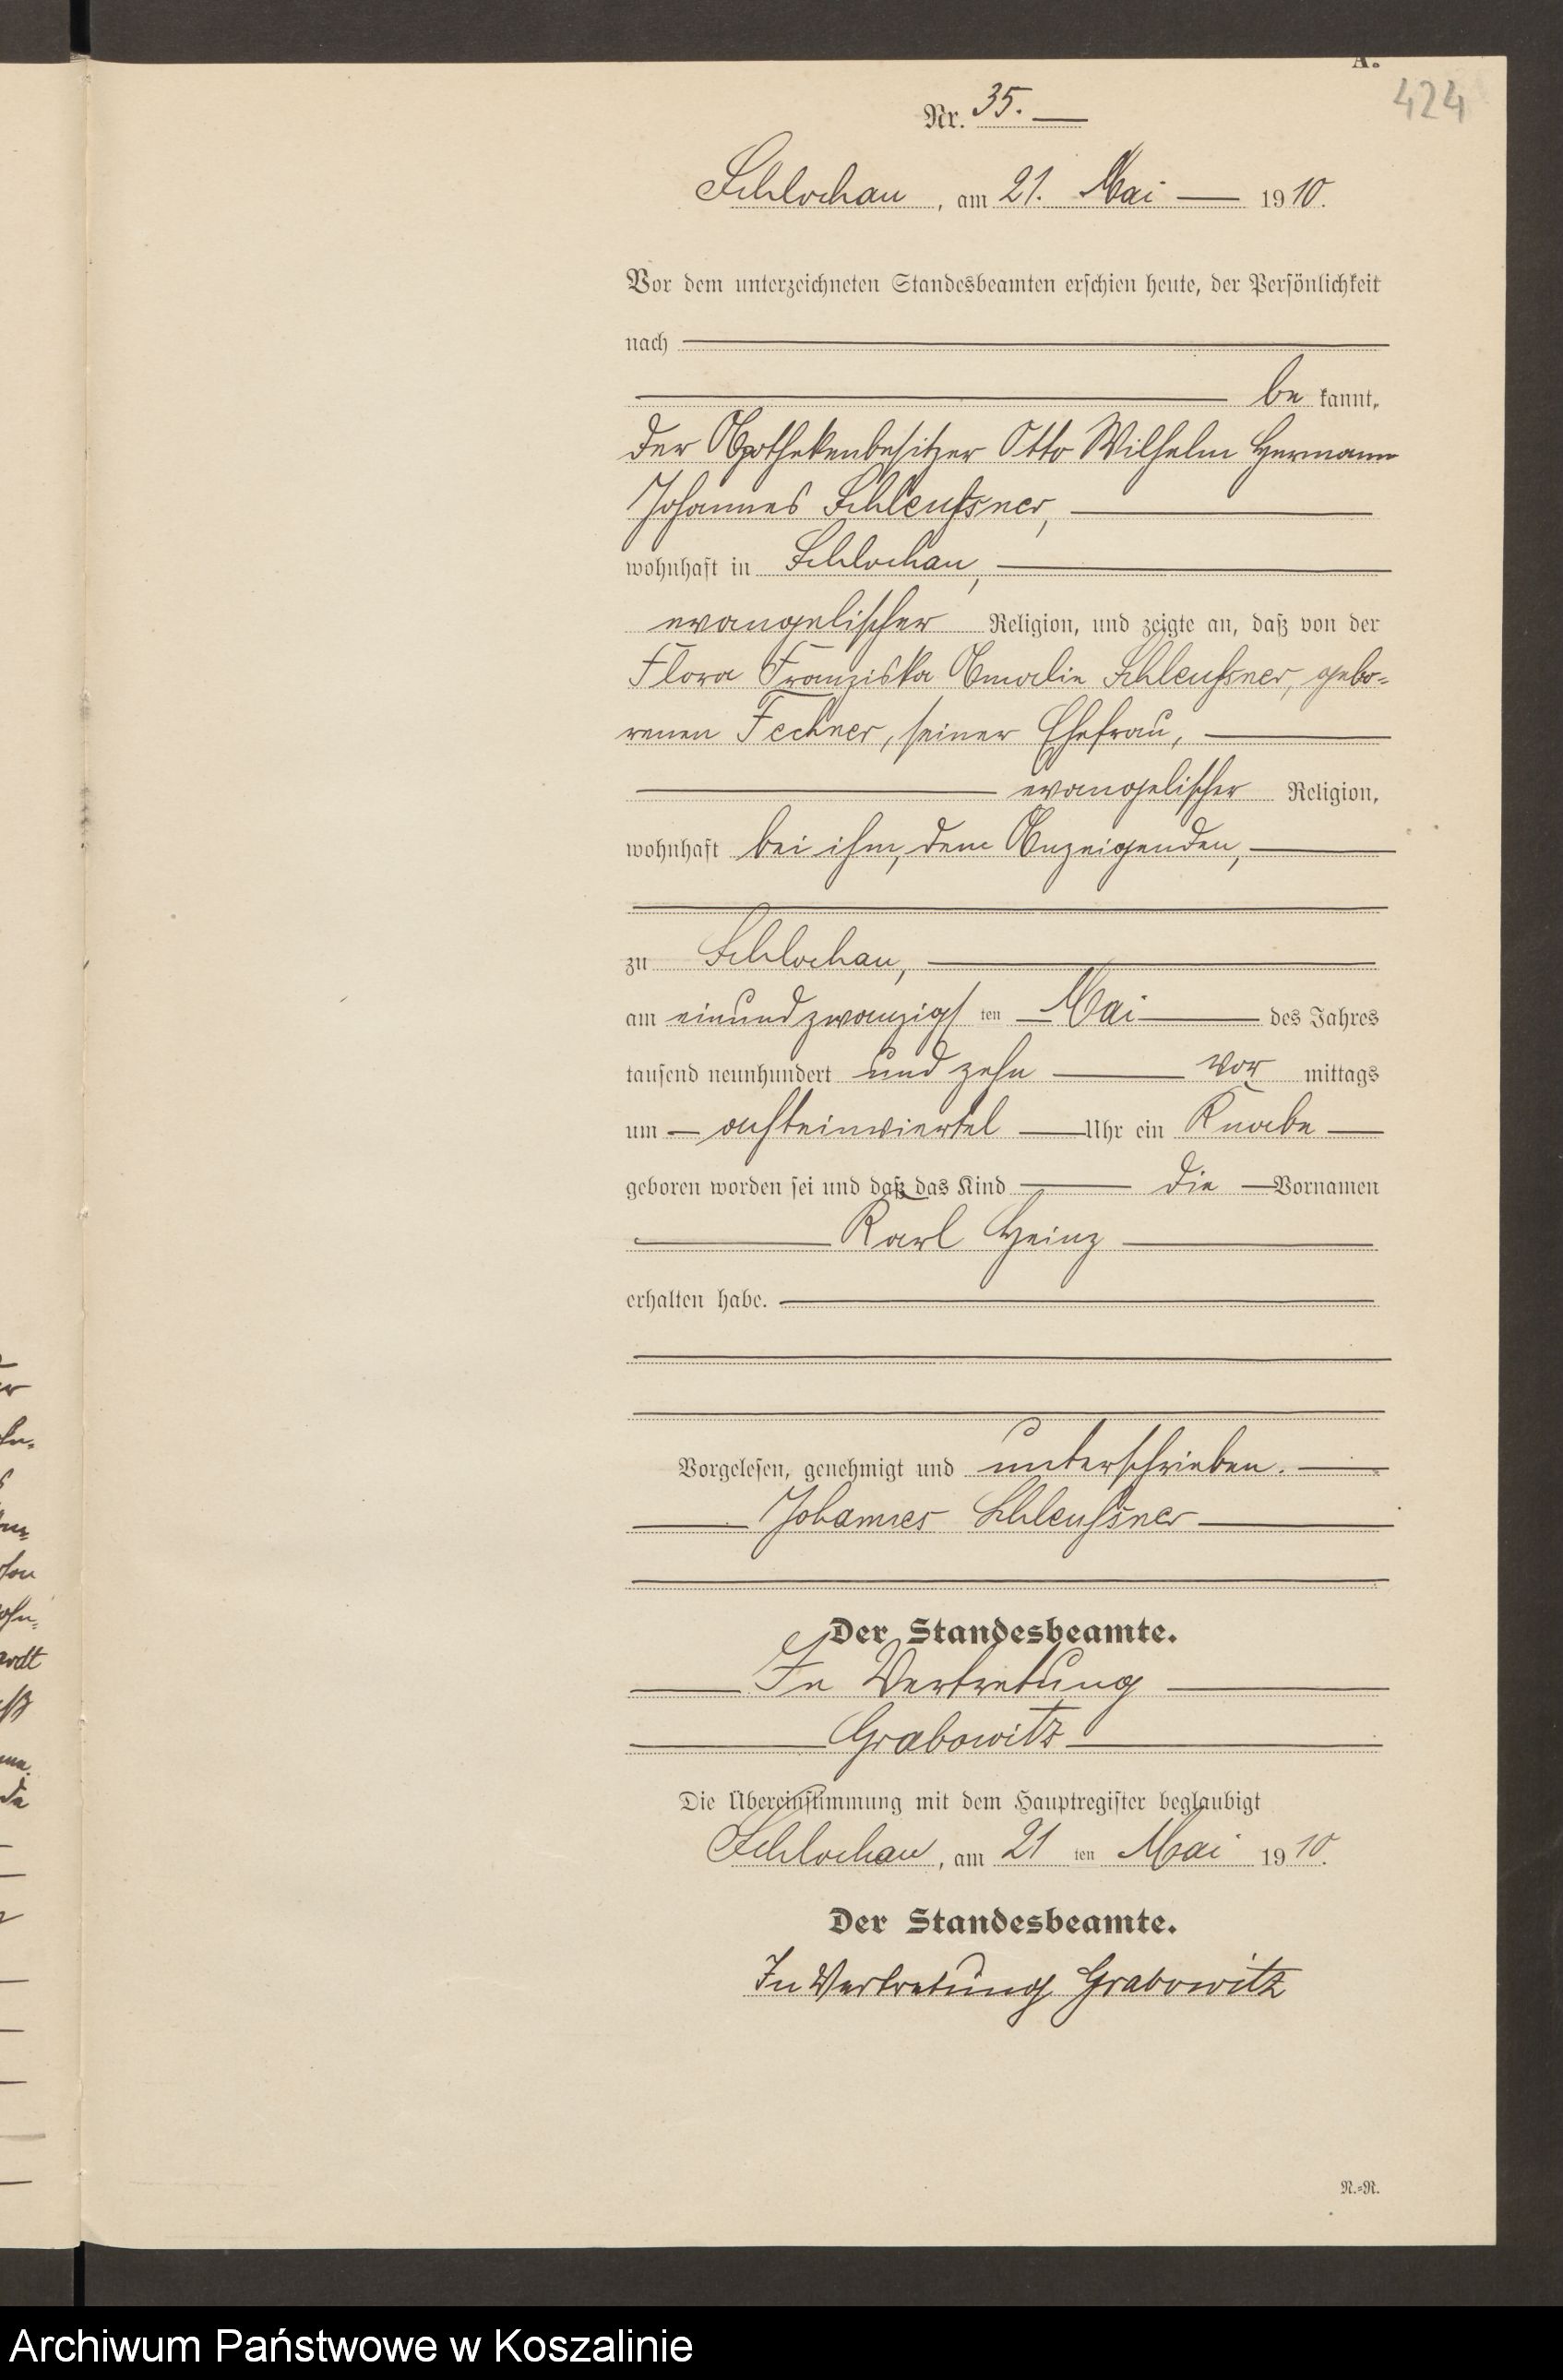 A.
424
Nr. 35.
Schlochau, am 21. Mai 1910.
Vor dem unterzeichneten Standesbeamten erschien heute, der Persönlichkeit
nach
be kannt,
der Apothekenbesitzer Otto Wilhelm Hermann
Johannes Schleußner,
wohnhaft in Schlochau,
evangelischer Religion, und zeigte an, daß von der
Flora Franziska Amalie Schleußner, gebo-
renen Fechner, seiner Ehefrau,
evangelischer Religion,
wohnhaft bei ihm, dem Anzeigenden,
zu Schlochau,
am einundzwanzigsten Mai des Jahres
tausend neunhundert und zehn vor mittags
um achteinviertel Uhr ein Knabe
geboren worden sei und daß das Kind die Vornamen
Karl Heinz
erhalten habe.
Vorgelesen, genehmigt und unterschrieben.
Johannes Schleußner
Der Standesbeamte.
In Vertretung
Grabowitz
Die Übereinstimmung mit dem Hauptregister beglaubigt
Schlochau, am 21 ten Mai 1910.
Der Standesbeamte.
In Vertretung Grabowitz
N.=N.
Archiwum Państwowe w Koszalinie